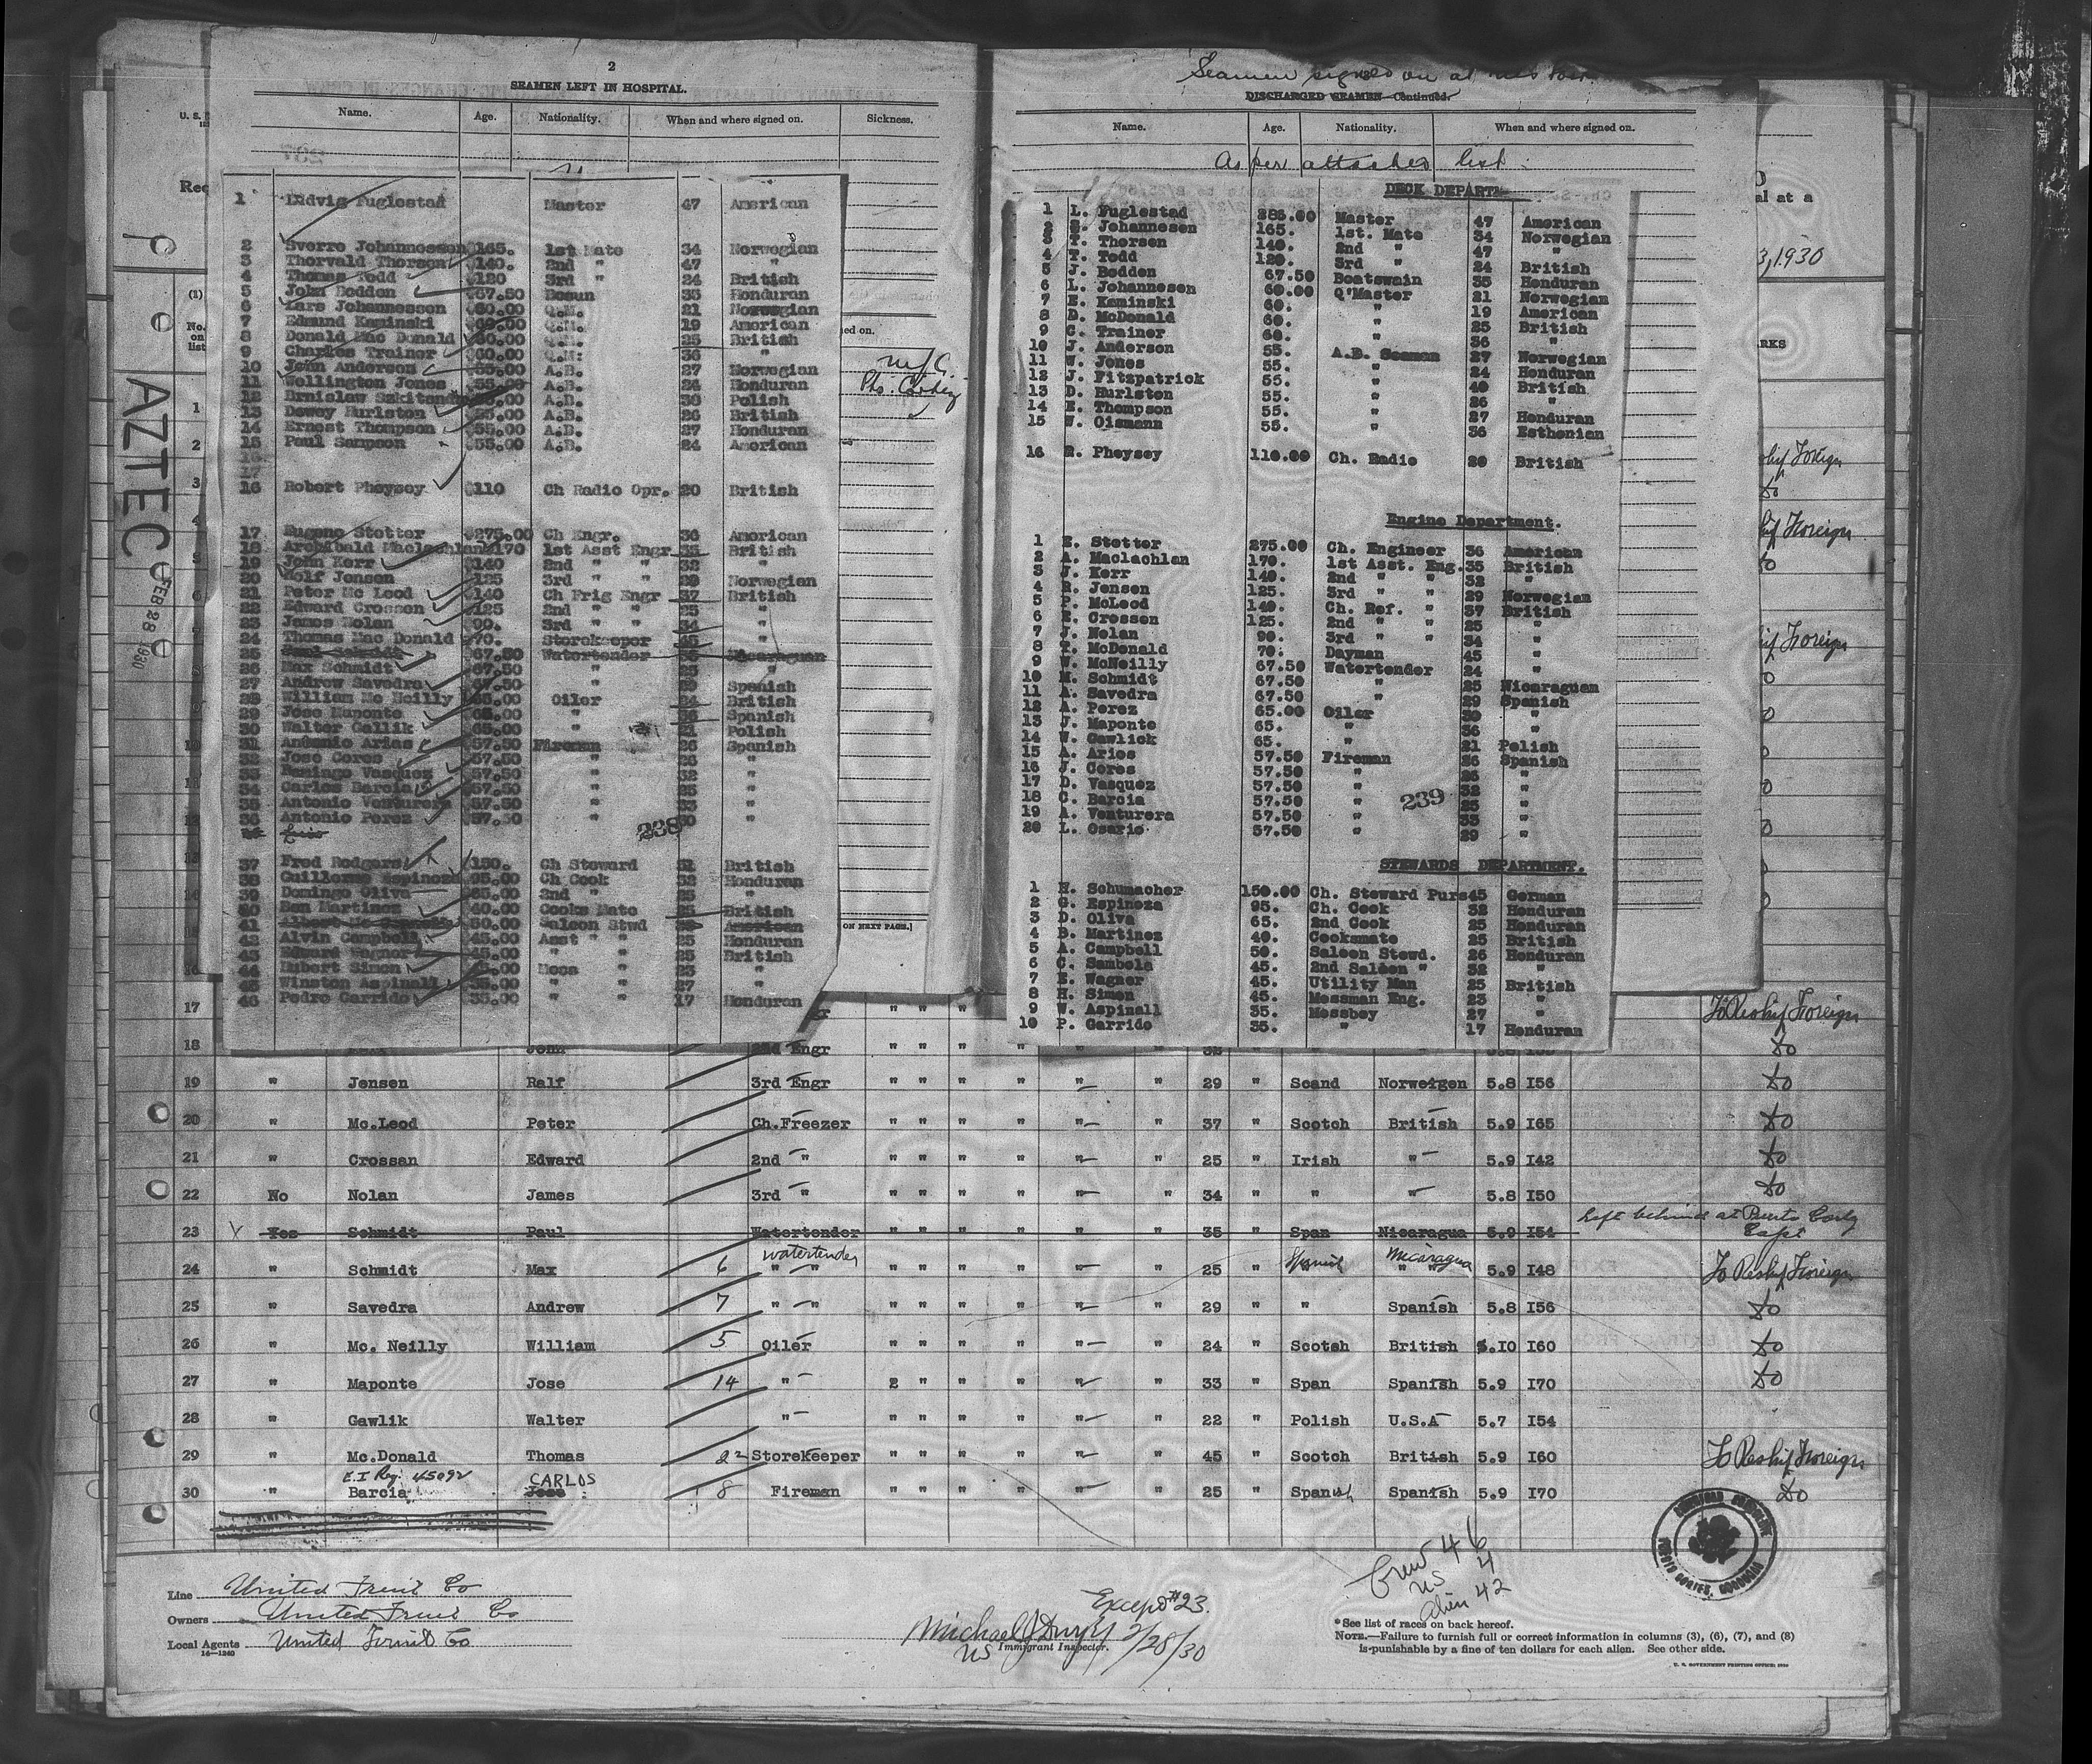 2
SEAMEN LEFT IN HOSPITAL.
Name. Age. Nationality. When and where signed on. Sickness.
1 Ludvig Fuglestad Master 47 American
2 Sverre Johannessen $165. 1st Mate 34 Norwegian
3 Thorvald Thorsen $140. 2nd " 47 "
4 Thomas Todd $120 3rd " 24 British
5 John Bodden $67.50 Bosun 35 Honduran
6 Lars Johannessen $60.00 Q.M. 21 Norwegian
7 Edmund Kaminski $60.00 Q.M. 19 American
8 Donald Mac Donald $60.00 Q.M. 25 British
9 Charles Trainer $60.00 Q.M: 36 "
10 John Anderson $55.00 A.B. 27 Norwegian
11 Wellington Jones $55.00 A.B. 24 Honduran
12 $55.00 A.B. 30 Polish
13 Dewey Hurlston $55.00 A.B. 26 British
14 Ernest Thompson $55.00 A.B. 27 Honduran
15 Paul Sampson $55.00 A.B. 24 American
16 Robert Pheysey $110 Ch Radio Opr. 20 British
17 Eugene Stetter $275.00 Ch Engr. 36 American
18 Archibald Maclachlan $170 1st Asst Engr 35 British
19 John Kerr $140 2nd " " 32 "
20 Rolf Jensen $125 3rd " " 29 Norwegian
21 Peter Mc Leod $140 Ch Frig Engr 37 British
22 Edward Crossen $125 2nd " " 25 "
23 James Nolan $90. 3rd " " 34 "
24 Thomas Mac Donald $70. Storekeeper 45 "
25 Paul Schmidt $67.50 Watertender 35 Nicaraguan
26 Max Schmidt $67.50 " 25 "
27 Andrew Savedra $67.50 " 29 Spanish
28 William Mc Neilly $65.00 Oiler 24 British
29 Jose Maponte $65.00 " 36 Spanish
30 Walter Gallik $65.00 " 21 Polish
31 Antonio Arias $57.50 Fireman 26 Spanish
32 Jose Ceres $57.50 " 26 "
33 Domingo Vasquez $57.50 " 32 "
34 Carlos Barcia $57.50 " 25 "
35 Antonio Venturera $57.50 " 33 "
36 Antonio Perez $57.50 " 30 "
238
37 Fred Rodgers $150. Ch Steward 31 British
38 Guillermo Espinoza $95.00 Ch Cook 32 Honduran
39 Domingo Oliva $65.00 2nd " 25 "
40 Ben Martinez $40.00 Cooks Mate 25 British
41 $50.00 Saloon Stwd American
42 Alvin Campbell $45.00 Asst " " 25 Honduran
43 Edward Wagner $45.00 " " 25 British
44 Hubert Simon Mess " 23 "
45 Winston Aspinall $35.00 " " 27 "
46 Pedro Garrido $35.00 " " 17 Honduran
Seamen signed on at
DISCHARGED SEAMEN—Continued.
Name. Age. Nationality. When and where signed on.
As per attached list.
DECK DEPARTM
1 L. Fuglestad 285.00 Master 47 American
2 S. Johannesen 165. 1st. Mate 34 Norwegian
3 T. Thorsen 140. 2nd " 47 "
4 T. Todd 120. 3rd " 24 British
5 J. Bodden 67.50 Boatswain 35 Honduran
6 L. Johannesen 60.00 Q'Master 21 Norwegian
7 E. Kaminski 60. " 19 American
8 D. McDonald 60. " 25 British
9 C. Trainer 60. " 36 "
10 J. Anderson 55. A.B. Seaman 27 Norwegian
11 W. Jones 55. " 24 Honduran
12 J. Fitzpatrick 55. " 40 British
13 D. Hurlston 55. " 26 "
14 E. Thompson 55. " 27 Honduran
15 W. Oismann 55. " 36 Esthonian
16 R. Pheysey 110.00 Ch. Radio 20 British
Engine Department.
1 E. Stetter 275.00 Ch. Engineer 36 American
2 A. Maclachlan 170. 1st Asst. Eng. 35 British
3 J. Kerr 140. 2nd " " 32 "
4 R. Jensen 125. 3rd " " 29 Norwegian
5 P. McLeod 140. Ch. Ref. " 37 British
6 E. Crossen 125. 2nd " " 25 "
7 J. Nolan 90. 3rd " " 34 "
8 T. McDonald 70. Dayman 45 "
9 W. McNeilly 67.50 Watertender 24 "
10 M. Schmidt 67.50 " 25 Nicaraguan
11 A. Savedra 67.50 " 29 Spanish
12 A. Perez 65.00 Oiler 30 "
13 J. Maponte 65. " 36 "
14 W. Gawlick 65. " 21 Polish
15 A. Arios 57.50 Fireman 26 Spanish
16 J. Ceres 57.50 " 26 "
17 D. Vasquez 57.50 " 32 "
18 C. Barcia 57.50 " 25 "
19 A. Venturera 57.50 " 33 "
20 L. Osario 57.50 " 29 "
239
STEWARDS DEPARTMENT.
1 H. Schumacher 150.00 Ch. Steward Purs 45 German
2 G. Espinoza 95. Ch. Cook 32 Honduran
3 D. Oliva 65. 2nd Cook 25 Honduran
4 B. Martinez 40. Cooksmate 25 British
5 A. Campbell 50. Saloon Stewd. 26 Honduran
6 C. Sambola 45. 2nd Saloon " 32 "
7 E. Wagner 45. Utility Man 25 British
8 H. Simon 45. Messman Eng. 23 "
9 W. Aspinall 35. Messboy 27 "
10 P. Garrido 35. " 17 Honduran
AZTEC
FEB 28 1930
U. S.
Rec
(1)
No. on list
al at a
3, 1930
RKS
ed on.
ON NEXT PAGE.]
17 To Reship Foreign
18 John 2nd Engr " " " " " " 32 do
19 " Jensen Ralf 3rd Engr " " " " " " 29 " Scand Norweigen 5.8 I56 do
20 " Mc.Leod Peter Ch.Freezer " " " " " " 37 " Scotch British 5.9 I65 do
21 " Crossan Edward 2nd " " " " " " " 25 " Irish " 5.9 I42 do
22 No Nolan James 3rd " " " " " " " 34 " " " 5.8 I50 do
23 Yes Schmidt Paul Watertender 35 Span Nicaragua 5.9 I54 Left behind at Puerto
24 " Schmidt Max 6 watertender " " " " " " " " 25 " Spanish Nicaragua 5.9 I48 To Reship Foreign
25 " Savedra Andrew 7 " " " " " " " " 29 " " Spanish 5.8 I56 do
26 " Mc. Neilly William 5 Oiler " " " " " " 24 " Scotch British 5.10 I60 do
27 " Maponte Jose 14 " 2 " " " " " 33 " Span Spanish 5.9 I70 do
28 " Gawlik Walter " " " " " " " 22 " Polish U.S.A 5.7 I54
29 " Mc.Donald Thomas 22 Storekeeper " " " " " " 45 " Scotch British 5.9 I60 To Reship Foreign
E.I Reg. 45092 CARLOS
30 " Barcia Jose 8 Fireman " " " " " " 25 " Spanish Spanish 5.9 I70 do
Crew 46
US 4
Alien 42
AMERICAN CONSULATE PUERTO CORTES, HONDURAS
Line United Fruit Co
Owners United Fruit Co
Local Agents United Fruit Co
14—1240
Except #23.
Michael J Dwyer 2/28/30
US Immigrant Inspector.
*See list of races on back hereof.
NOTE.—Failure to furnish full or correct information in columns (3), (6), (7), and (8)
is punishable by a fine of ten dollars for each alien. See other side.
U. S. GOVERNMENT PRINTING OFFICE: